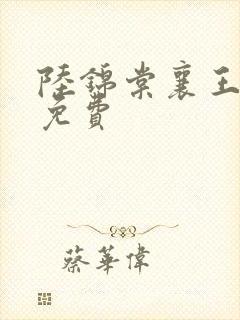 陸錦棠襄王
免費
蔡華偉